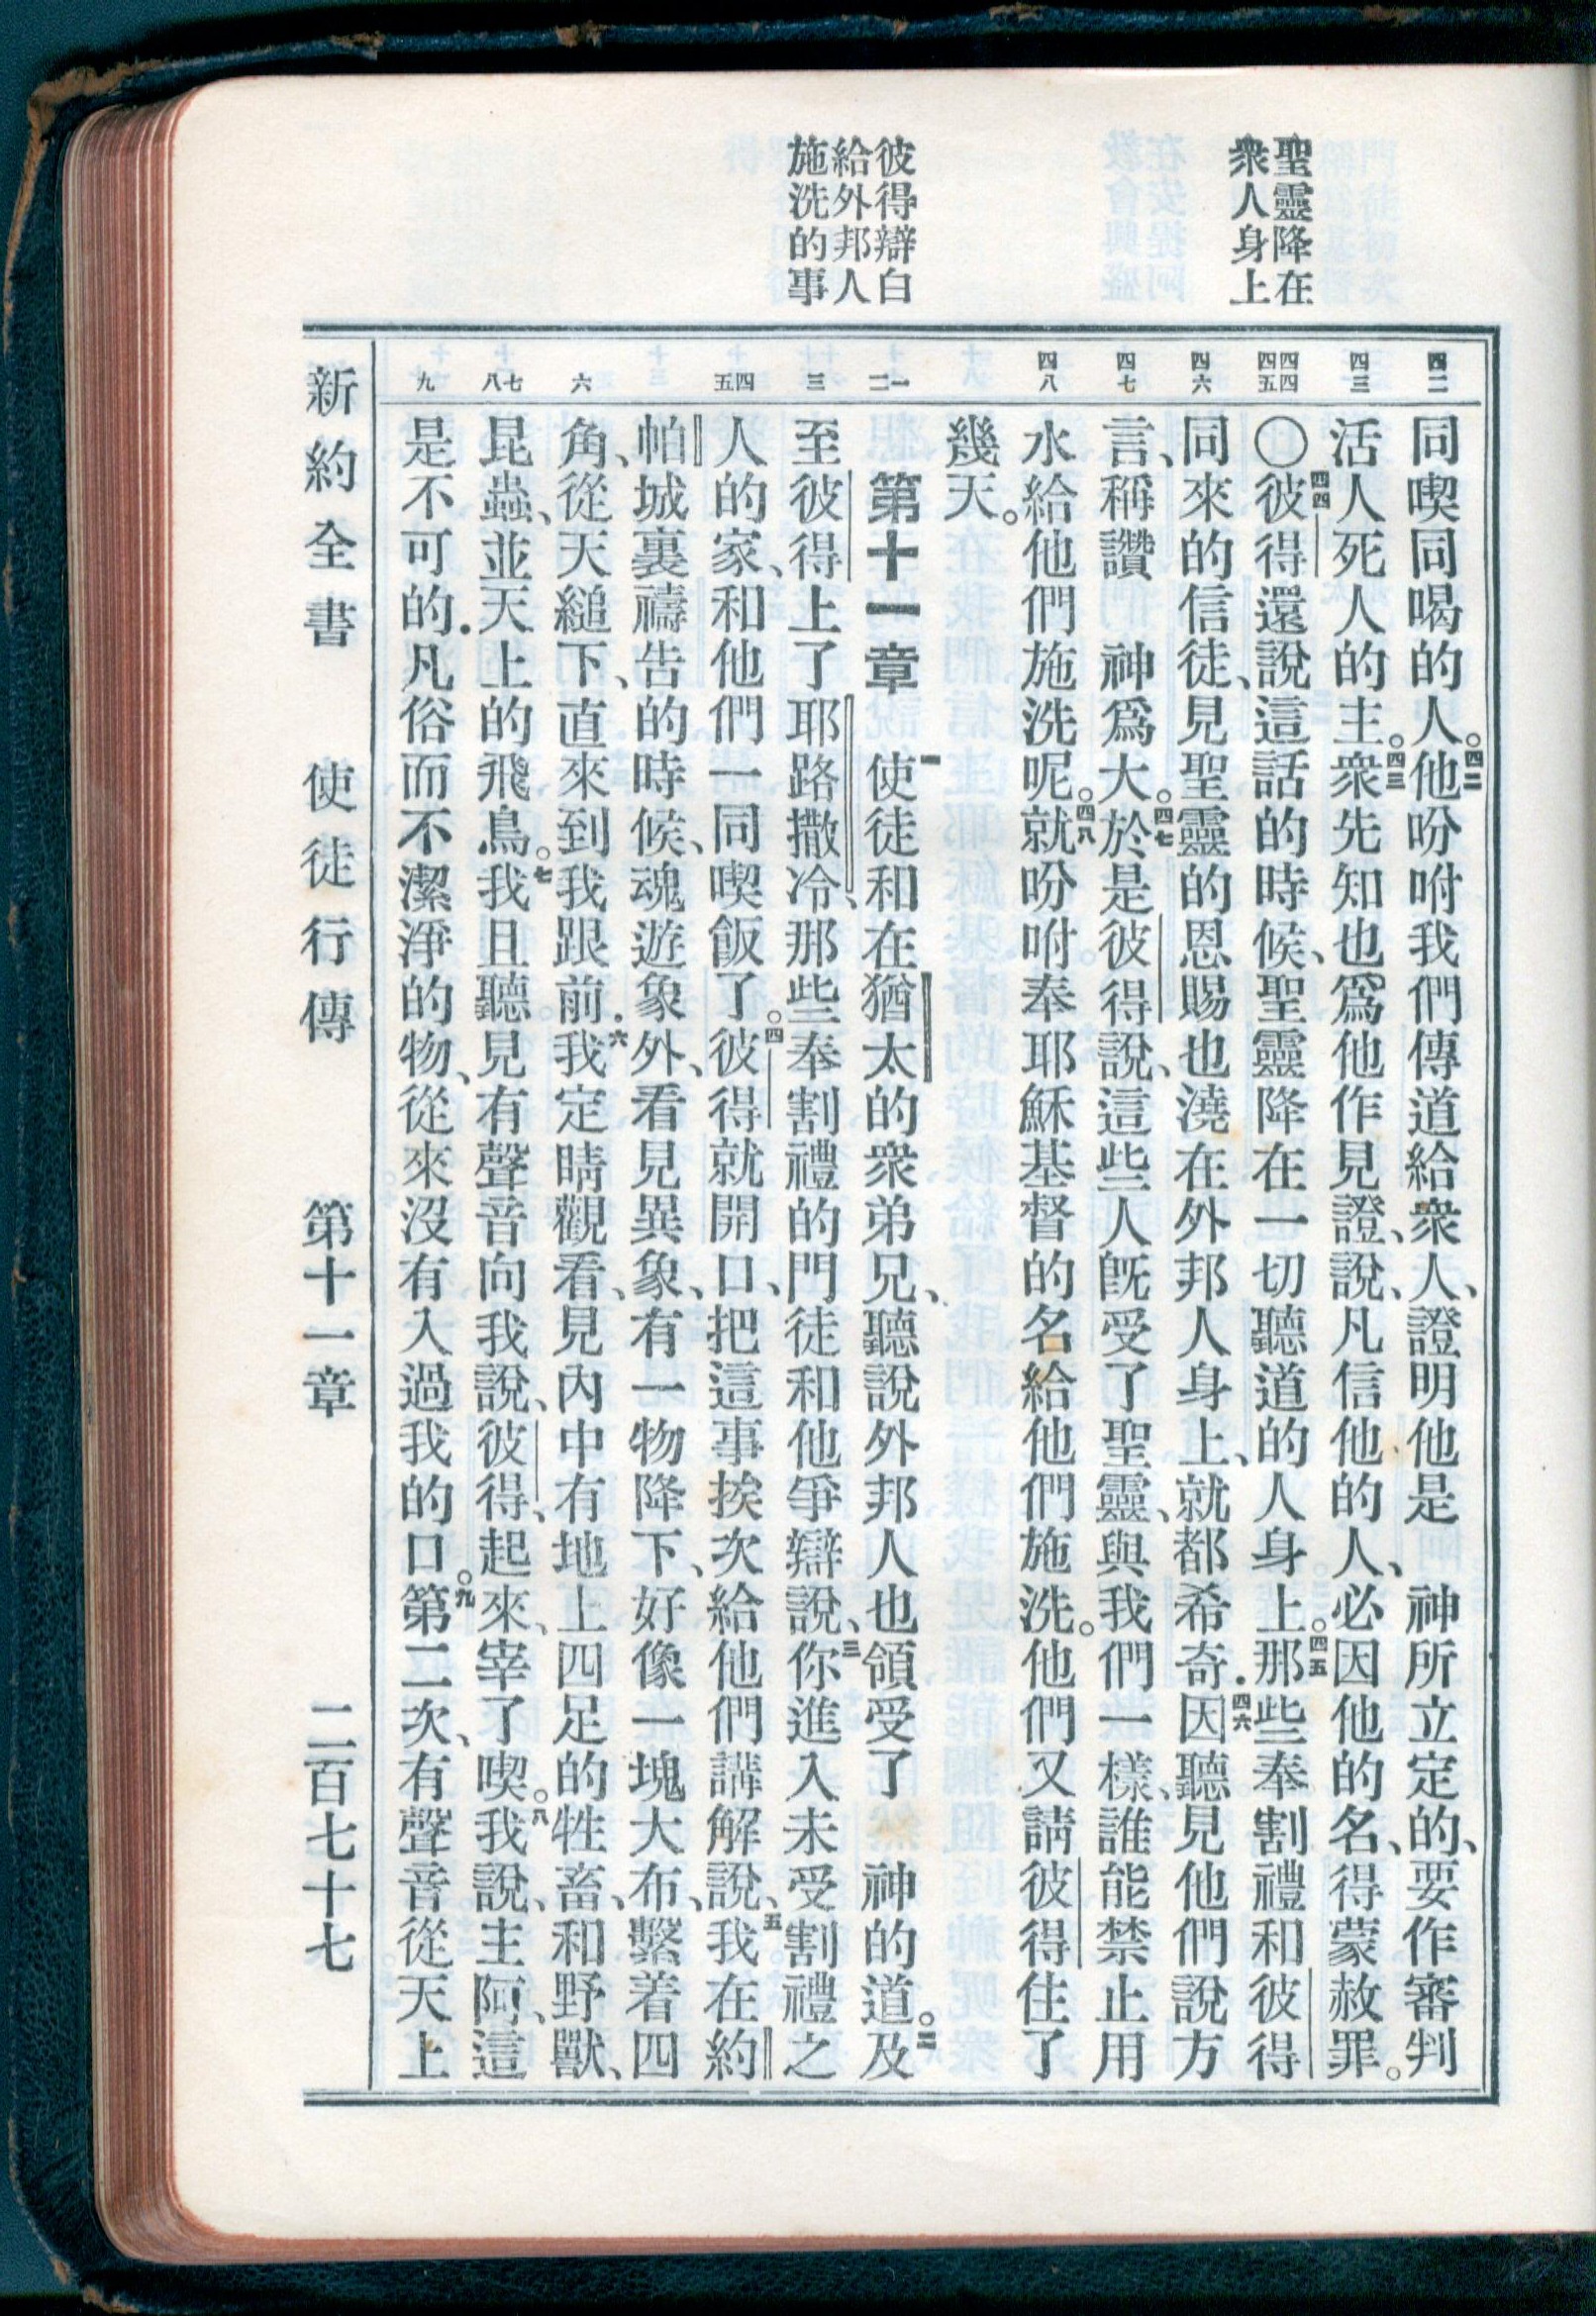 聖靈降在
衆人身上
彼得辯白
給外邦人
施洗的事
四二
四三
四四
四五
四六
四七
四八
一
二
三
四
五
六
七
八
九
同喫同喝的人。四二他吩咐我們傳道給衆人、證明他是　神所立定的、要作審判
活人死人的主。四三衆先知也爲他作見證、說、凡信他的人、必因他的名、得蒙赦罪。
〇四四彼得還說這話的時候、聖靈降在一切聽道的人身上。四五那些奉割禮和彼得
同來的信徒、見聖靈的恩賜也澆在外邦人身上、就都希奇．四六因聽見他們說方
言、稱讚　神爲大。四七於是彼得說、這些人旣受了聖靈、與我們一樣、誰能禁止用
水給他們施洗呢。四八就吩咐奉耶穌基督的名給他們施洗。他們又請彼得住了
幾天。
第十一章　一使徒和在猶太的衆弟兄、聽說外邦人也領受了　神的道。二及
至彼得上了耶路撒冷、那些奉割禮的門徒和他爭辯說、三你進入未受割禮之
人的家、和他們一同喫飯了。四彼得就開口、把這事挨次給他們講解說、五我在約
帕城裏禱告的時候、魂遊象外、看見異象、有一物降下、好像一塊大布、繫着四
角、從天縋下、直來到我跟前．六我定睛觀看、見內中有地上四足的牲畜、和野獸、
昆蟲、並天上的飛鳥。七我且聽見有聲音向我說、彼得、起來、宰了喫。八我說、主阿、這
是不可的．凡俗而不潔淨的物、從來沒有入過我的口。九第二次、有聲音從天上
新約全書　使徒行傳　第十一章　二百七十七